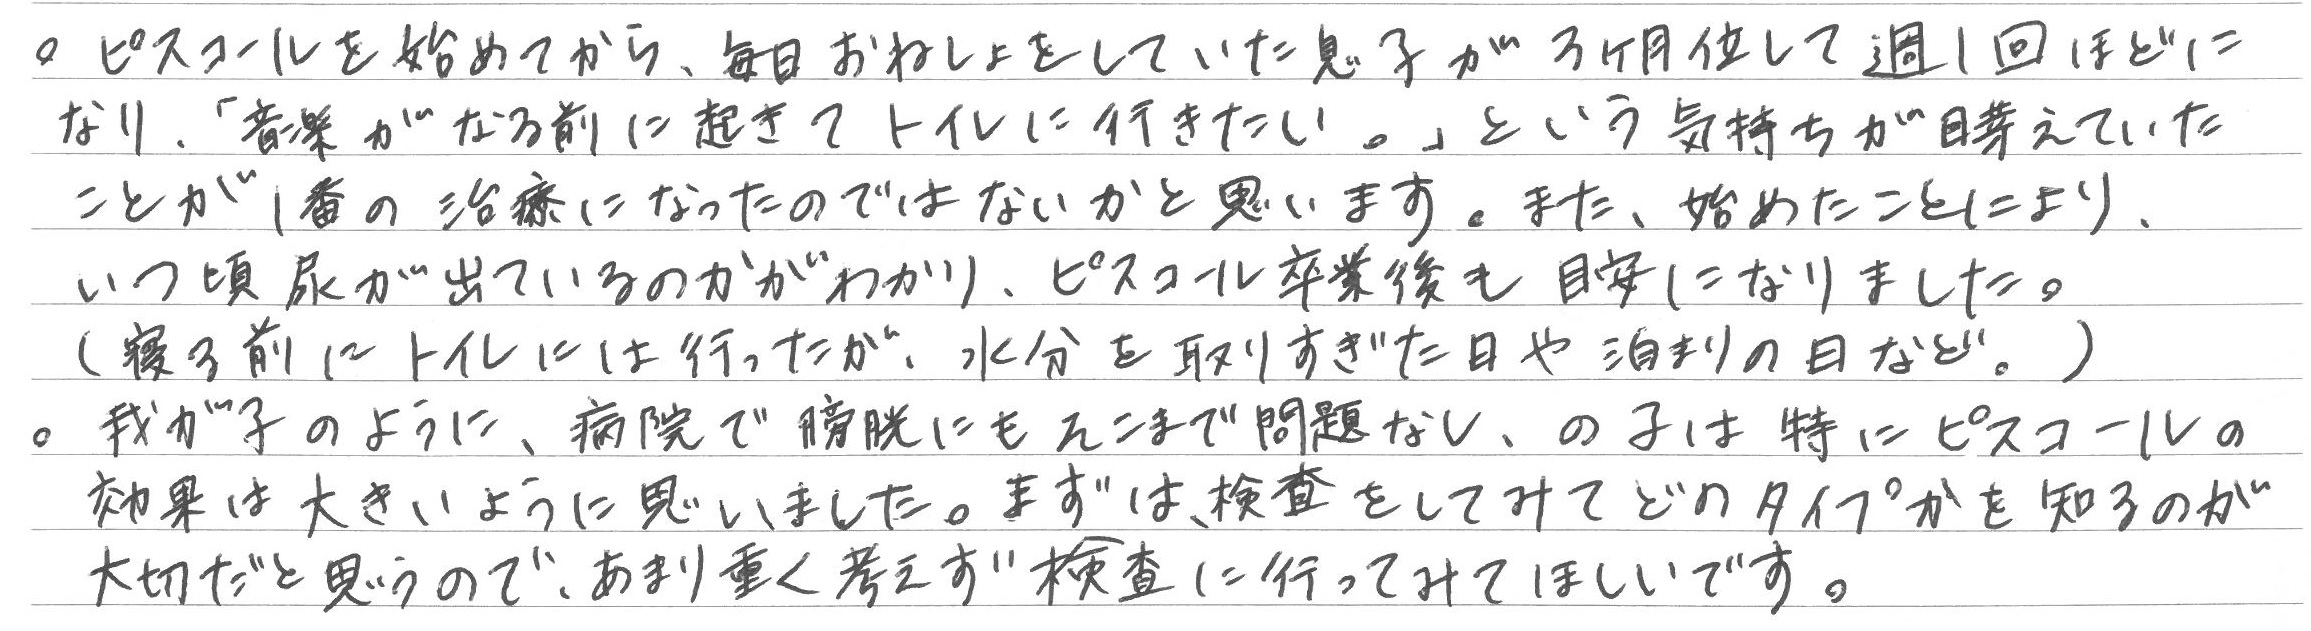 。ピスコールを始めてから、毎日おねしょをしていた息子が3ヶ月位して週1回ほどに
なり、「音楽がなる前に起きてトイレに行きたい。」という気持ちが芽えていた
ことが1番の治療になったのではないかと思います。また、始めたことにより、
いつ頃尿が出ているのかがわかり、ピスコール卒業後も目安になりました。
(寝る前にトイレには行ったが、水分を取りすぎた日や泊まりの日など。)
。我が子のように、病院で膀胱にもそこまで問題なし、の子は特にピスコールの
効果は大きいように思いました。まずは、検査をしてみてどのタイプかを知るのが
大切だと思うので、あまり重く考えず検査に行ってみてほしいです。